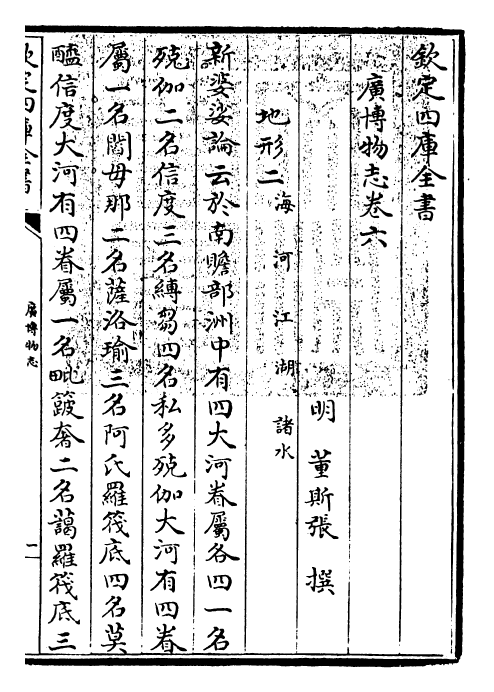 欽定四庫全書
廣博物志卷六
明 董斯張 撰
地形二 海 河 江 湖 諸水
新婆娑論云於南贍部洲中有四大河眷屬各四一名
殑伽二名信度三名縛芻四名私多殑伽大河有四眷
屬一名閻毋那二名薩洛瑜三名阿氏羅筏底四名莫
醯信度大河有四眷屬一名毗簸奢二名藹羅筏底三
欽定四庫全書
廣博物志
一